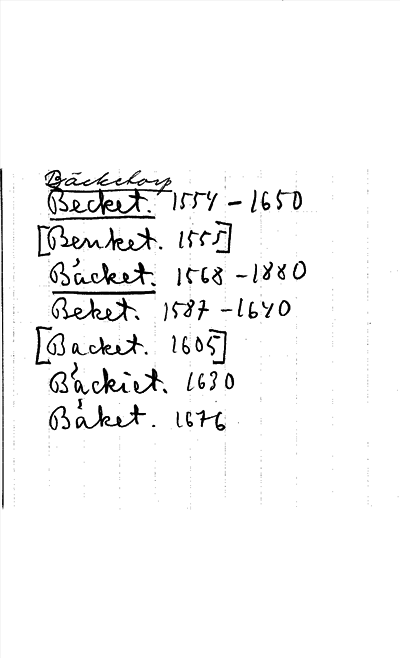 Bäckstorp
Becket. 1554 - 1650
[Benket. 1555]
Bäcket. 1568 - 1880
Beket. 1587 - 1640
[Backet. 1605]
Bäckiet. 1630
Bäket. 1676